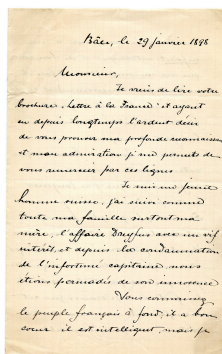 Bâle, le 29 janvier 1898
Monsieur,
Je viens de lire votre
brochure "Lettre à la France" et ayant
eu depuis longtemps l'ardent désir
de vous prouver ma profonde reconnaissance
et mon admiration je me permets de
vous remercier par ces lignes.
Je suis un jeune
homme suisse, j'ai suivi comme
toute ma famille surtout ma
mère, l'affaire Dreyfus avec un vif
intérêt, et depuis la condamnation
de l'infortuné capitaine, nous
étions persuadés de son innocence
Vous connaissez
le peuple français à fond, il a bon
coeur il est intelligent, mais